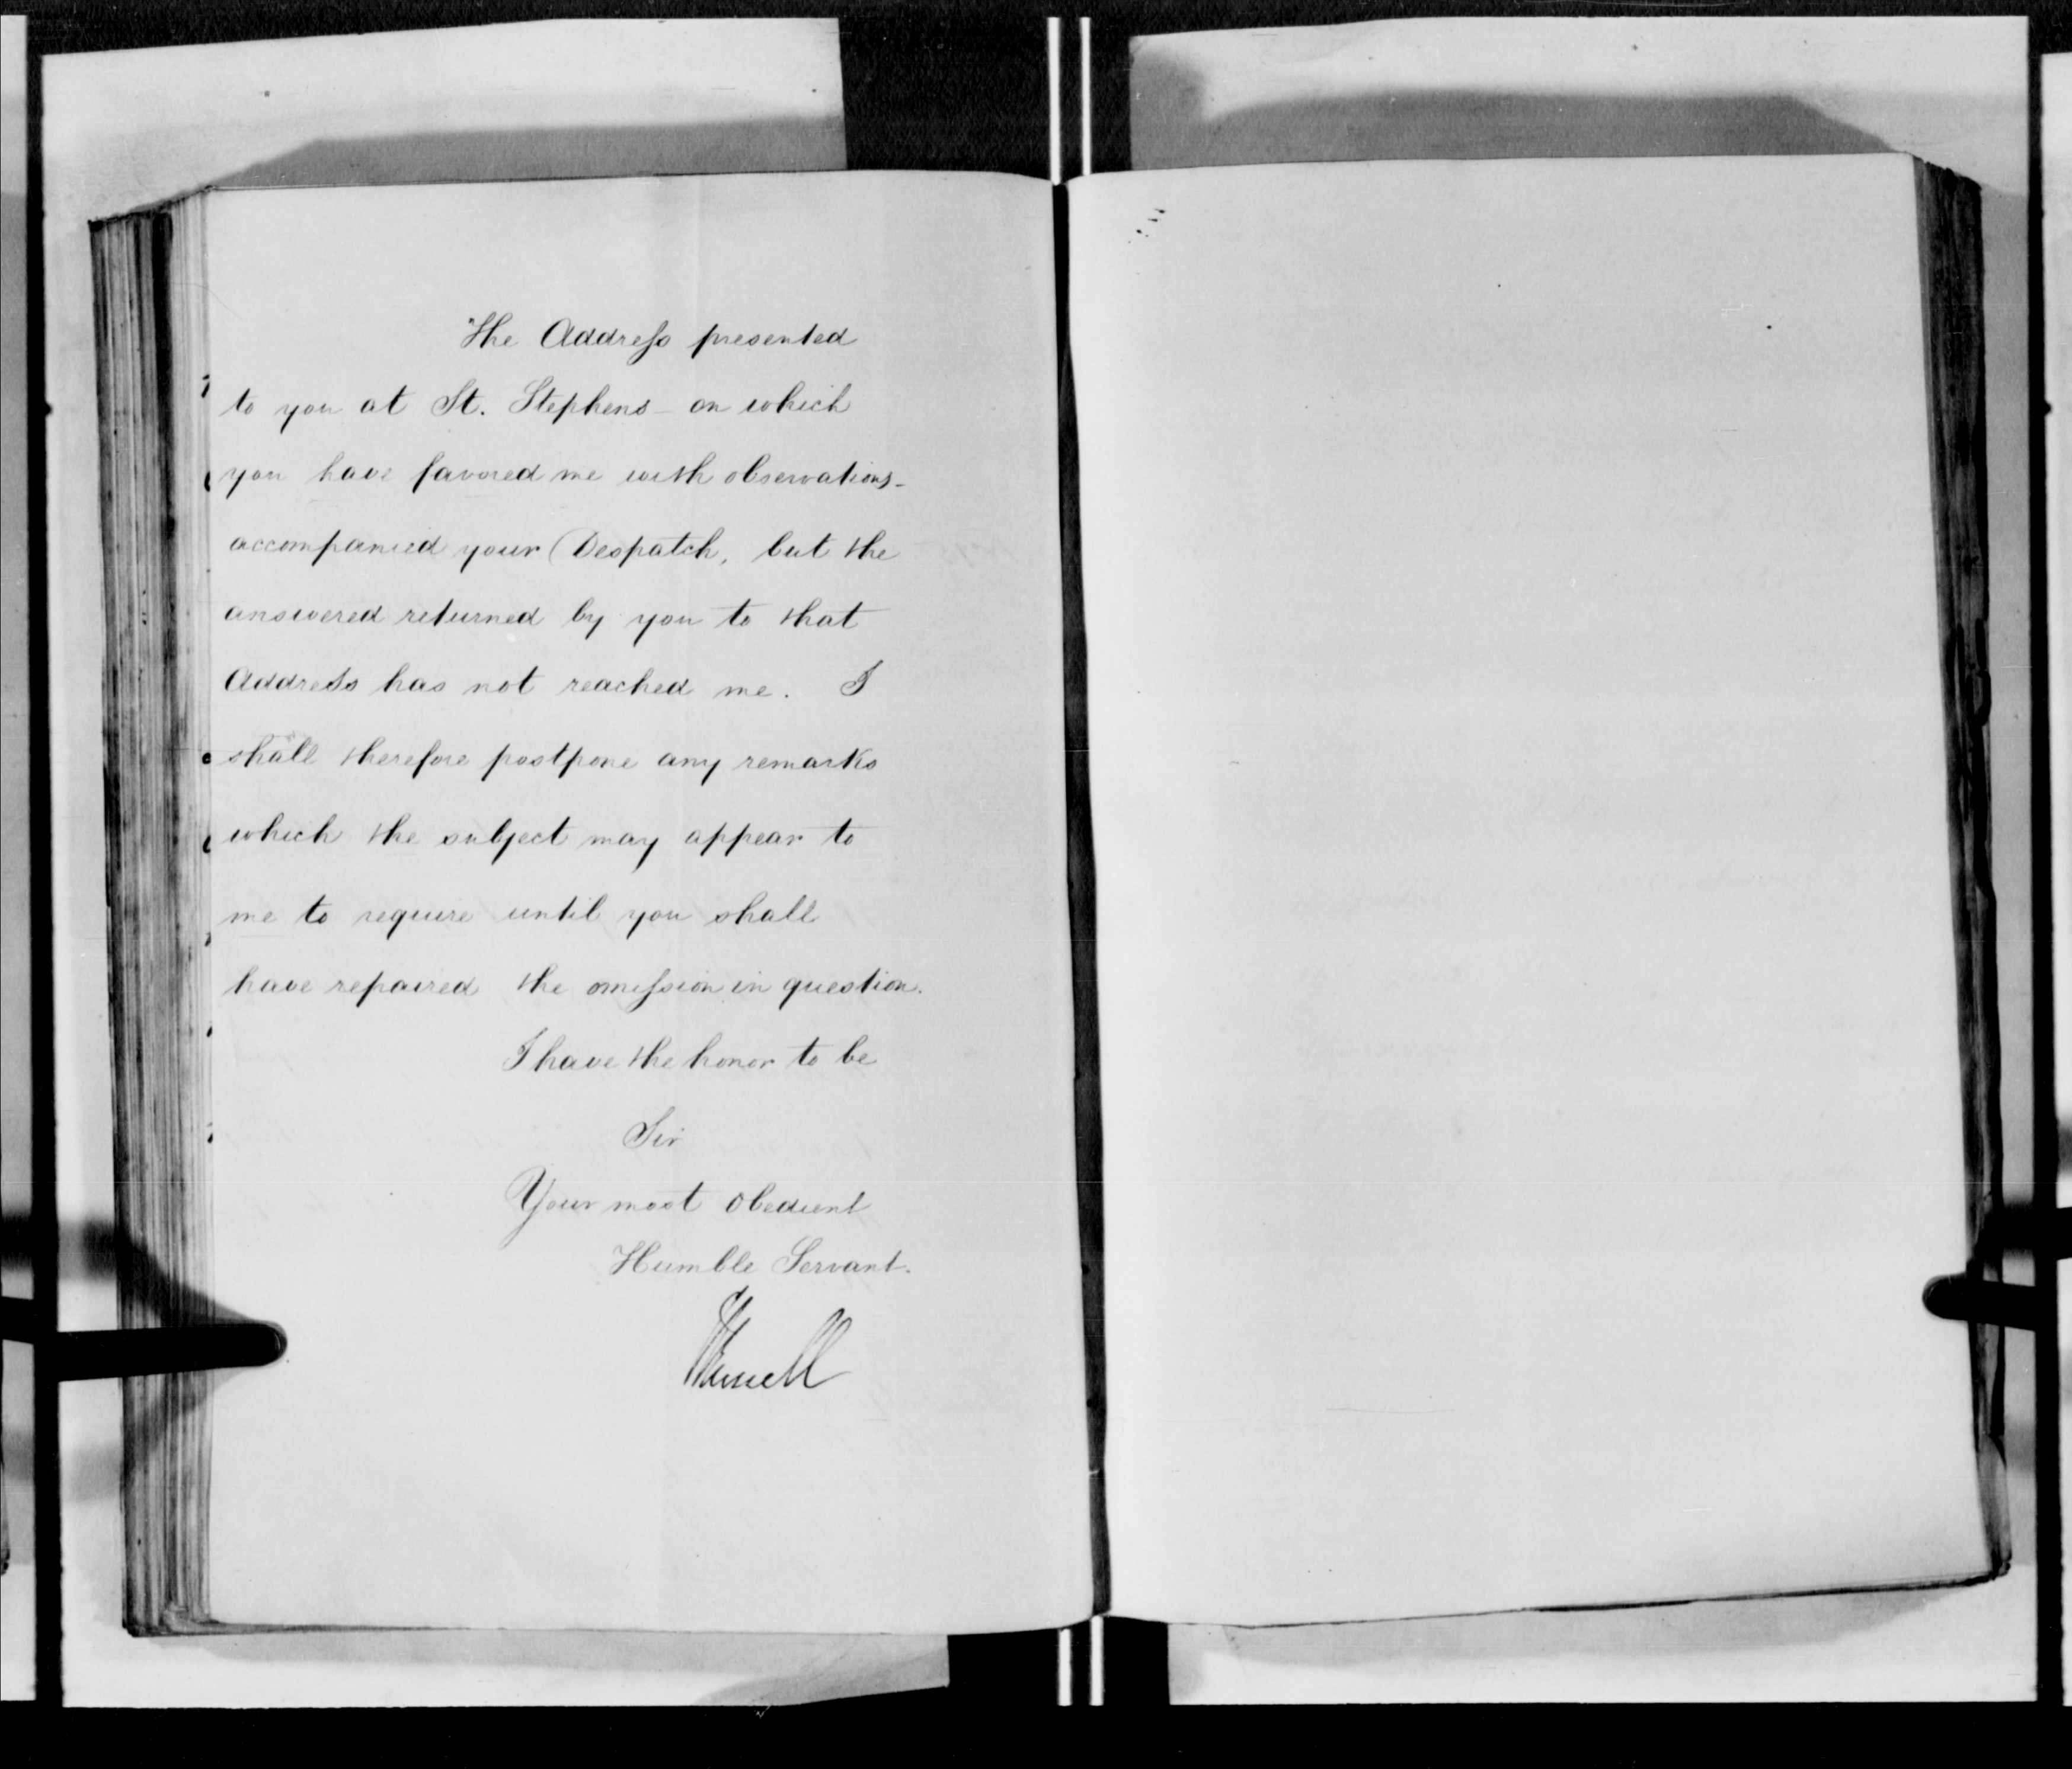 The Address presented
to you at St. Stephens - on which
you have favored me with observations -
accompanied your Despatch, but the
answered returned by you to that
Address has not reached me. I
shall therefore postpone any remarks
which the subject may appear to
me to require until you shall
have repaired the omission in question.
I have the honor to be
Sir
Your most obedient
Humble Servant.
JRussell